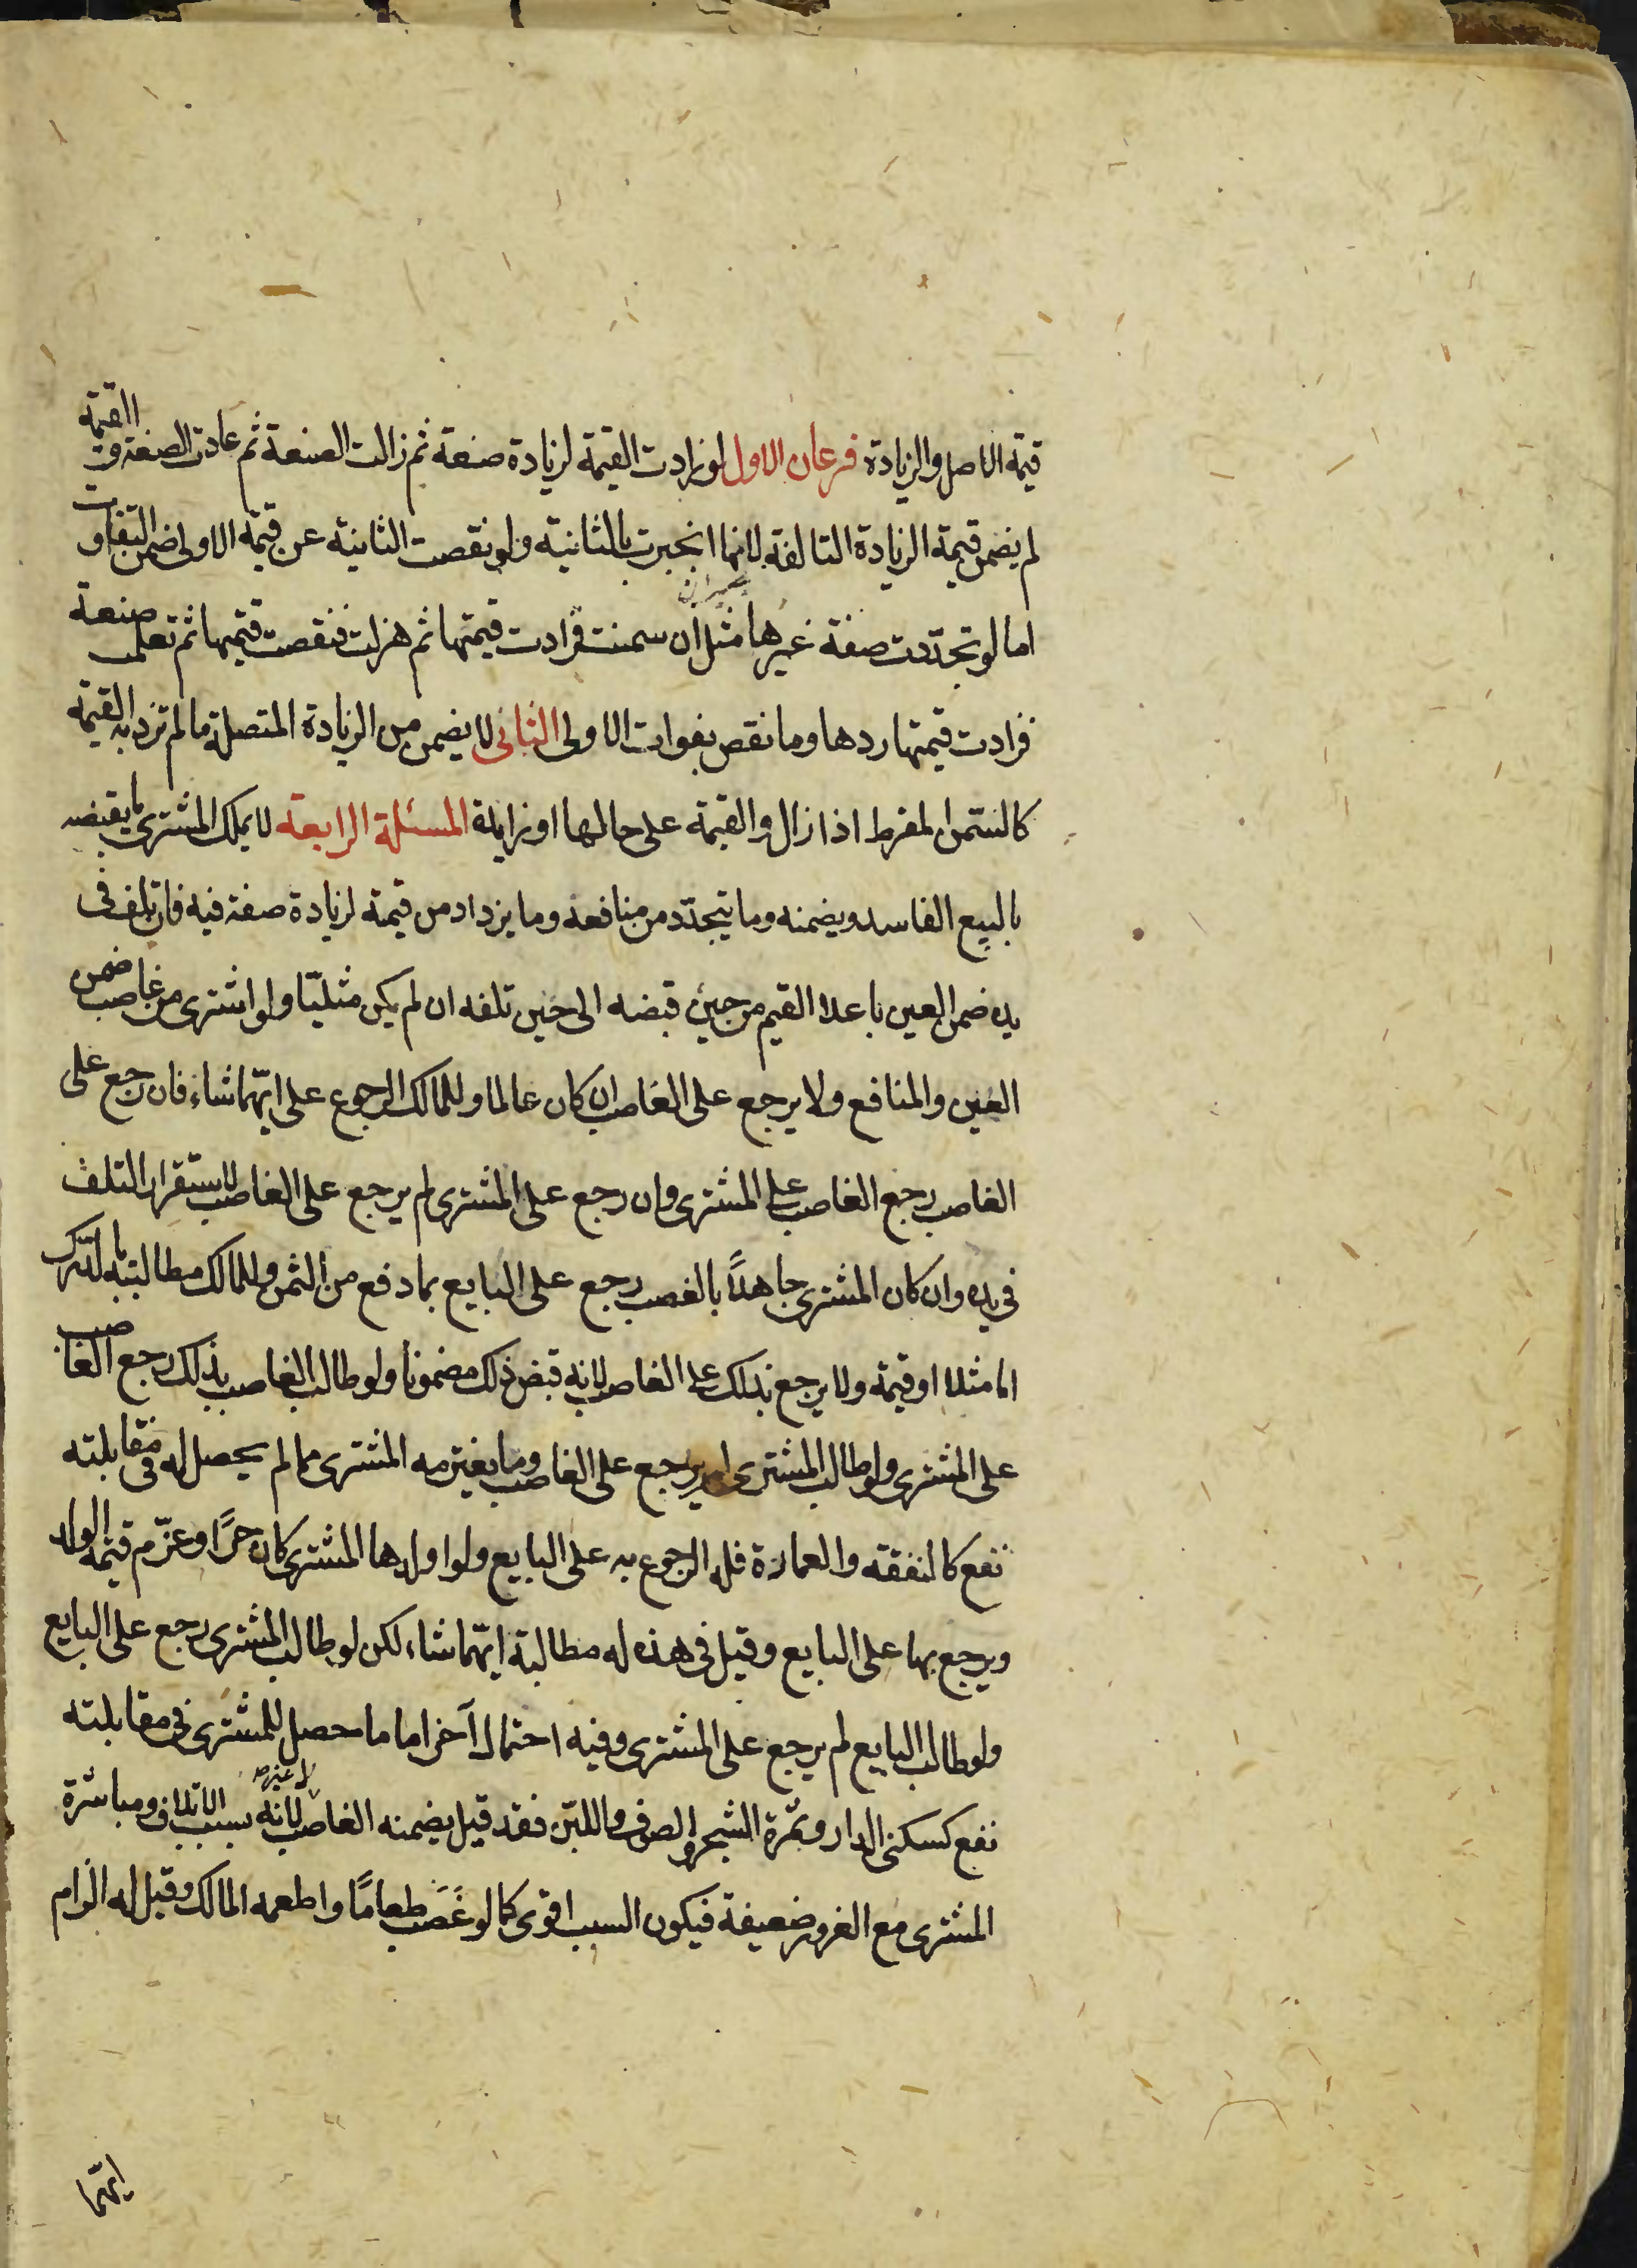 قيمة الاصل والزيادة فرعان الاول لو زادت القيمة لزيادة صنعة ثم زالت الصنعة ثم عادت الصنعة و القيمة
لم يضمن قيمة الزيادة التالفة لانها انجبرت بالثانية ولو نقصت الثانية عن قيمة الاولى ضمن التفاوت
اما لو تجدّدت صفة غيرها مثل ان سمنت فزادت قيمتها ثم هزلت فنقصت قيمتها ثم تعلمت صنعة
فزادت قيمتها ردها وما نقص بفوات الاولى الثانى لا يضمن من الزيادة المتصلة ما لم تزد به القيمة
كالسّمن المفرط اذا زال والقيمة على حالها او زايلة المسئلة الرابعة لا يملك المشترى ما يقبضه
بالبيع الفاسد ويضمنه وما يتجدّد من منافعه وما يزداد من قيمة لزيادة صفة فيه فان تلف فى
يده ضمن العين باعلا القيم من حين قبضه الى حين تلفه ان لم يكن مثليّا ولو اشترى من غاصب ضمن
العين والمنافع ولا يرجع على الغاصب ان كان عالما وللمالك الرجوع على ايّهما شاء فان رجع على
الغاصب رجع الغاصب على المشترى وان رجع على المشترى لم يرجع على الغاصب لاستقرار التلف
فى يده وان كان المشترى جاهلاً بالغصب رجع على البايع بما دفع من الثمن وللمالك مطالبته بالدّرك
اما مثلا او قيمة ولا يرجع بذلك على الغاصب لانه قبض ذلك مضمونا ولو طالب الغاصب بذلك رجع الغاصب
على المشترى ولو طالب المشترى لم يرجع على الغاصب وما يغترمه المشترى مما لم يحصل له فى مقابلته
نفع كالنفقة والعمارة فله الرجوع به على البايع ولو اولدها المشترى كان حرًا وغرّم قيمة الولد
ويرجع بها على البايع وقيل فى هذه له مطالبة ايّهما شاء لكن لو طالب المشترى رجع على البايع
ولو طالب البايع لم يرجع على المشترى وفيه احتمال آخر اما ما حصل للمشترى فى مقابلته
نفع كسكنى الدار وثمرة الشجر والصوف واللبن فقد قيل يضمنه الغاصب لا غير لانه سبب الاتلاف ومباشرة
المشترى مع الغرور ضعيفة فيكون السبب اقوى كما لو غَصَب طعامًا واطعمه المالك وقيل له الزام
ايّهما